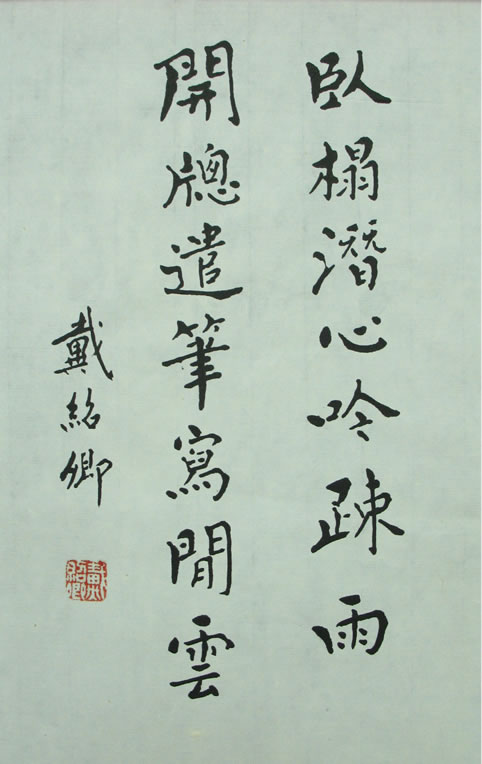 臥榻潛心吟疎雨
開牕遣筆寫閒雲
戴紹卿
戴紹卿